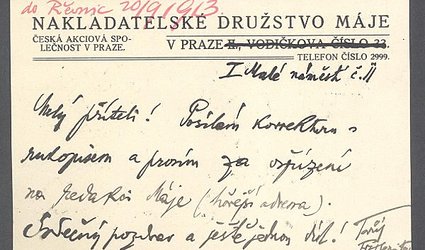 do Řevnic 20/9/913
NAKLADATELSKÉ DRUŽSTVO MÁJE
ČESKÁ AKCIOVÁ SPO-
LEČNOST V PRAZE.
V PRAZE II., VODIČKOVA ČÍSLO 22.
TELEFON ČÍSLO 2999.
I Malé náměstí č. 11
Milý příteli! Posílám korrekturu s
rukopisem a prosím za vyřízení
na redakci Máje (hořejší adresa).
Srdečný pozdrav a ještě jednou dík! Tvůj